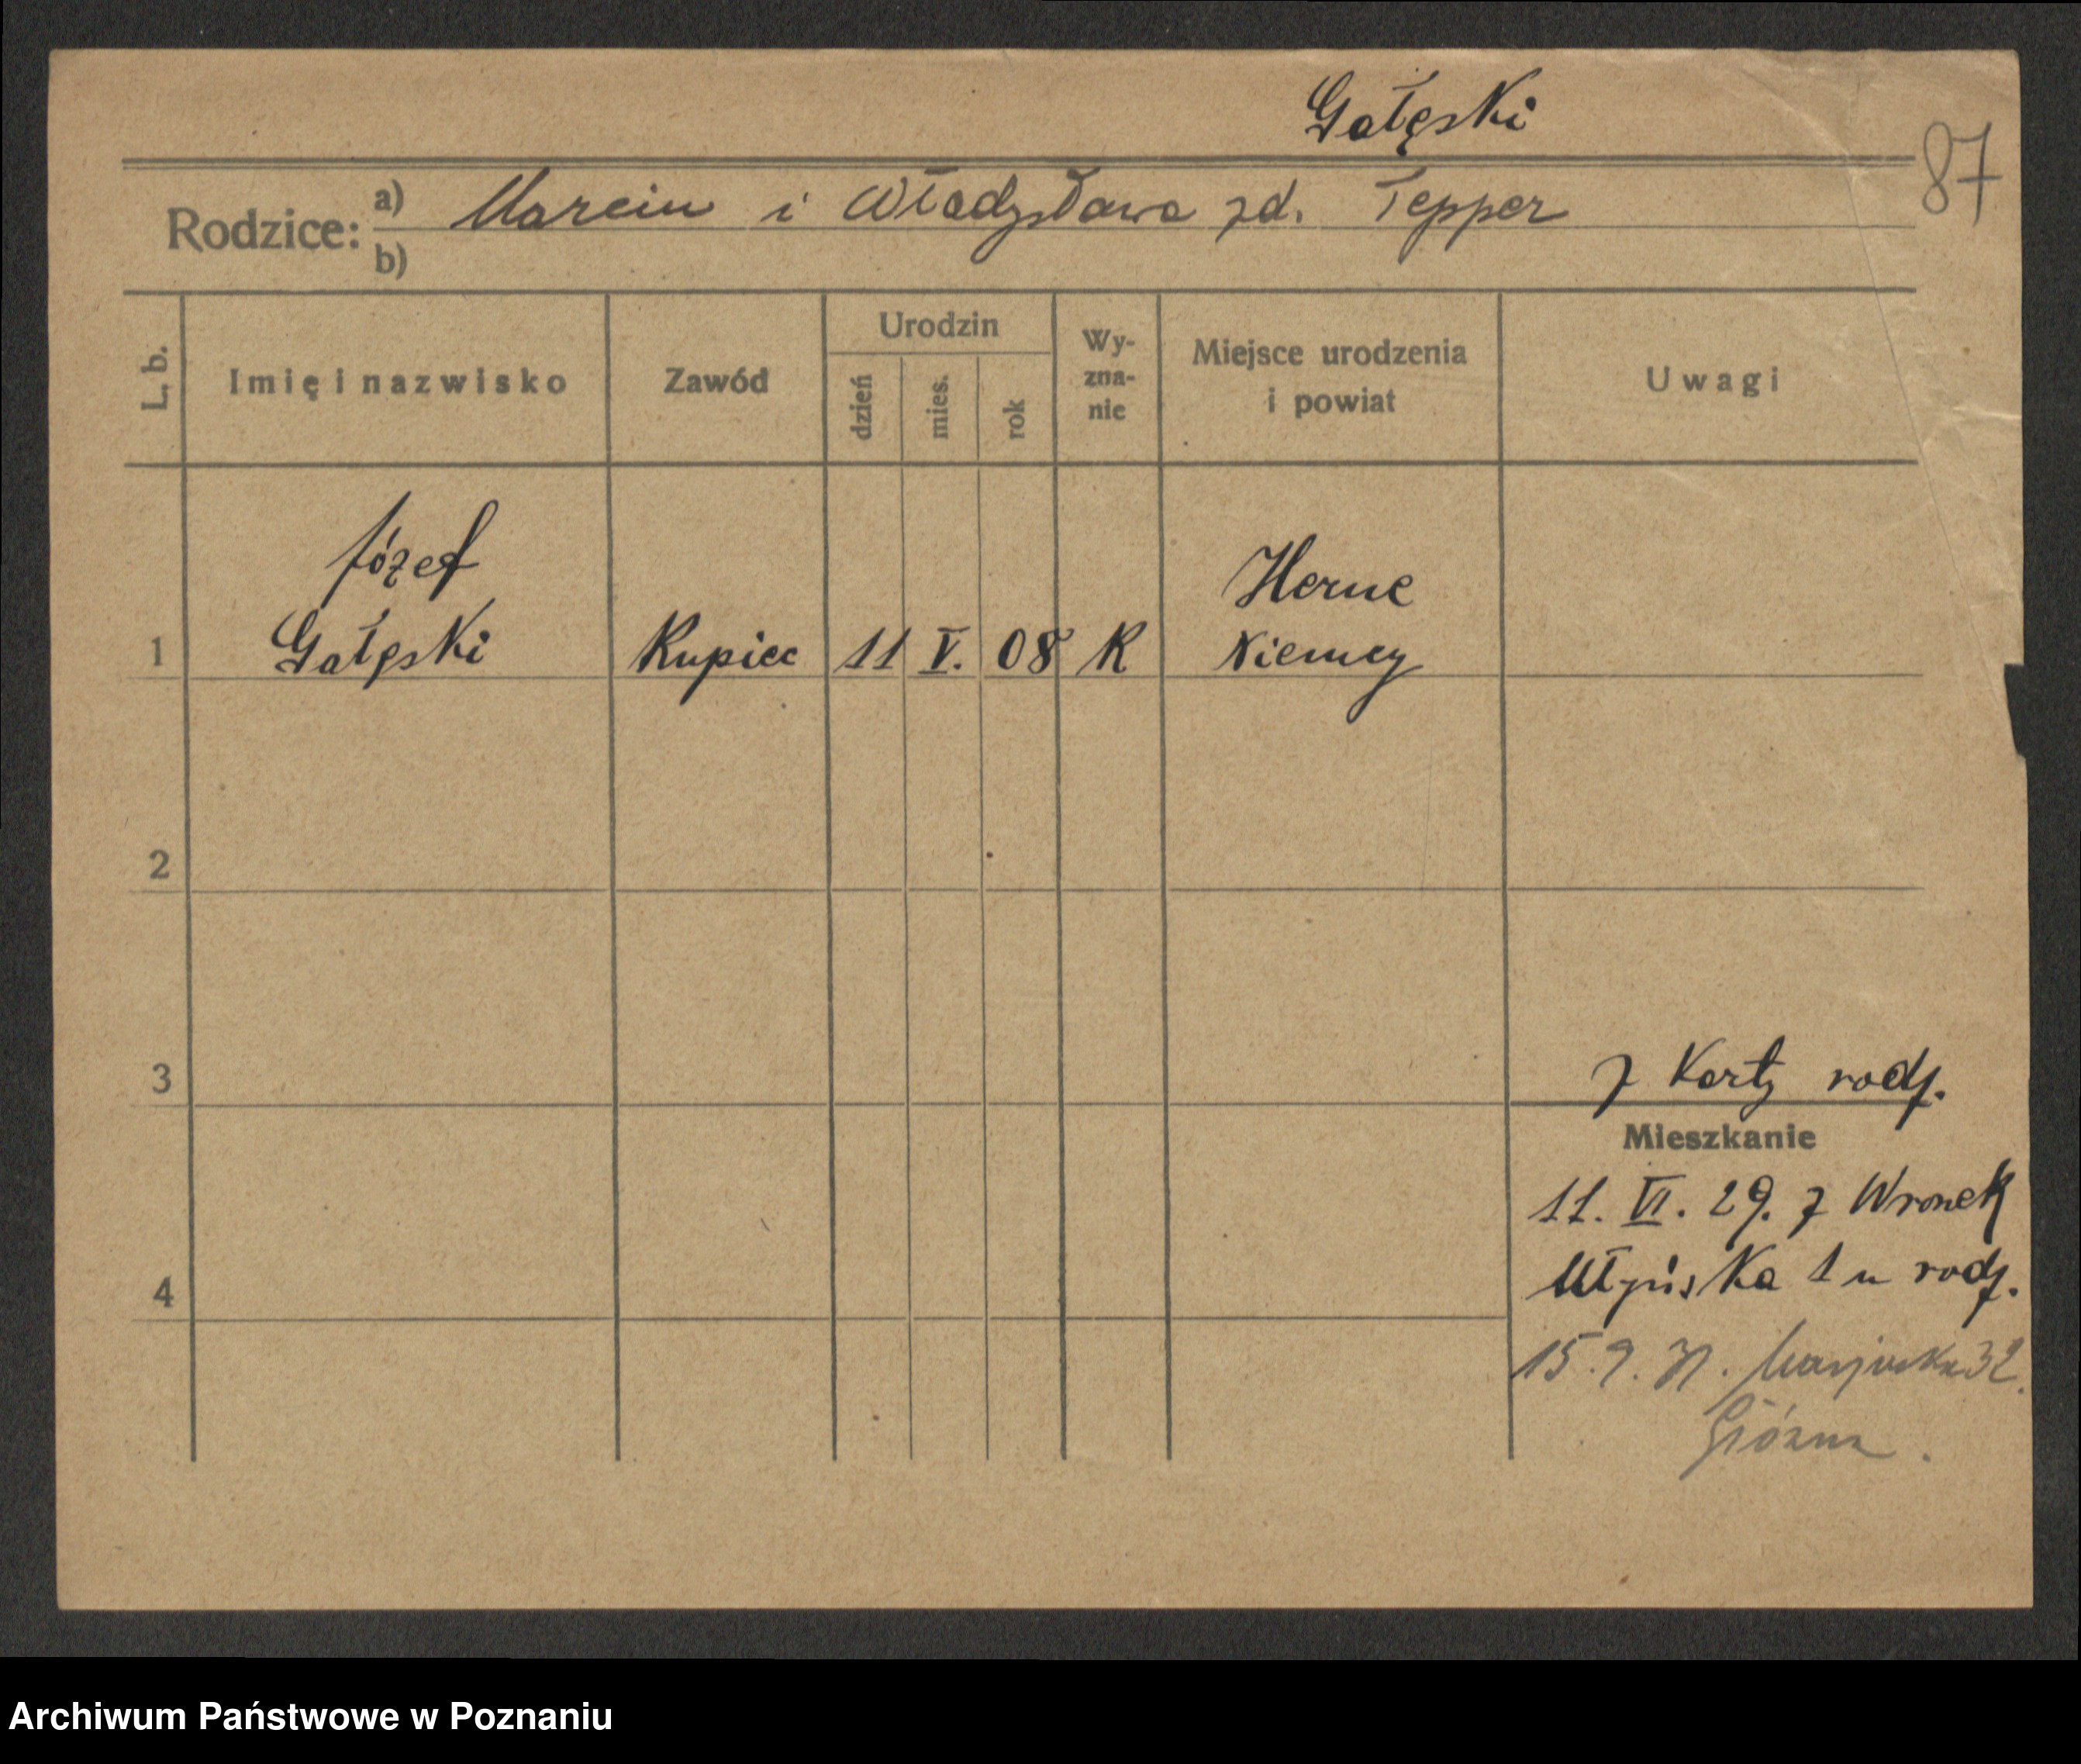 Gałęski
87
Rodzice: a) Marcin i Władysława zd. Tepper
b)
L. b.
Imię i nazwisko
Zawód
Urodzin
dzień
mies.
rok
Wy-
zna-
nie
Miejsce urodzenia
i powiat
Uwagi
Józef
Gałęski
Kupiec
11
V.
08
R
Herne
Niemcy
1
2
3
4
z Karty rodz.
Mieszkanie
11. VI. 29. z Wronek
Młyńska 1 u rodz.
15. 9. 31. 32.
Archiwum Państwowe w Poznaniu